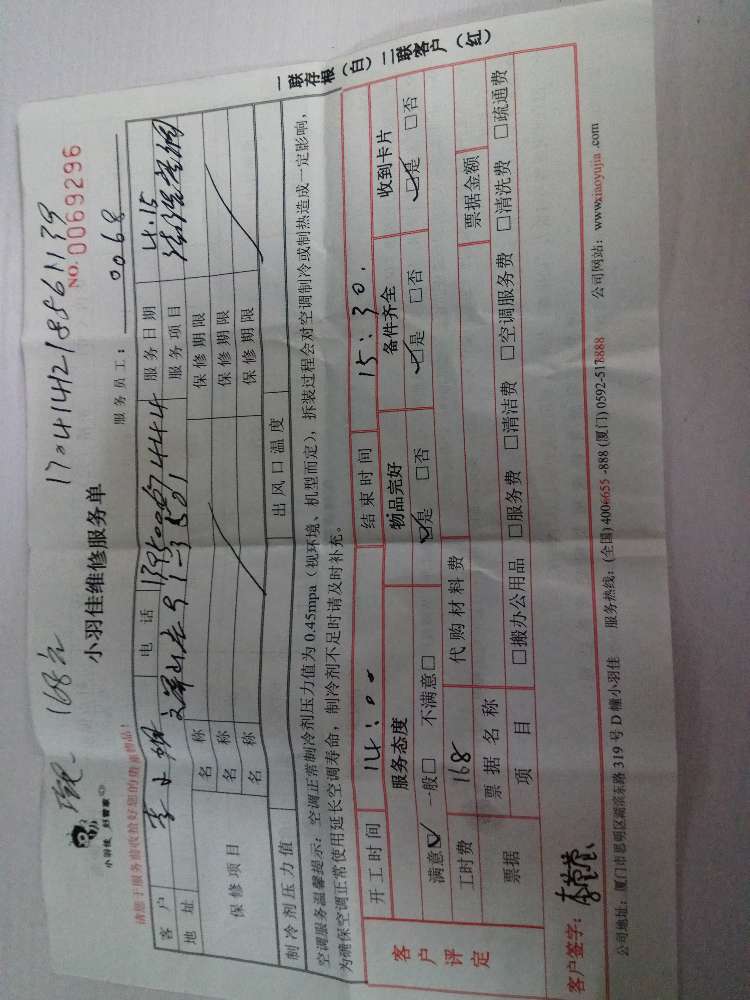 现 168元 1704141421886 1139
小羽佳 好管家
小羽佳维修服务单
NO. 0069296
请您于服务前收拾好您的贵重物品!
服务员工: 0068
客户 李小姐 电话 服务日期 4.15
地址 服务项目
保修项目 名称 保修期限
名称 保修期限
名称 保修期限
制冷剂压力值 出风口温度
空调服务温馨提示: 空调正常制冷剂压力值为 0.45mpa(视环境、机型而定), 拆装过程会对空调制冷或制热造成一定影响,
为确保空调正常使用延长空调寿命, 制冷剂不足时请及时补充。
客户评定
开工时间 14:00 结束时间 15:30.
服务态度 物品完好 备件齐全 收到卡片
满意☑ 一般□ 不满意□ ☑是 □否 ☑是 □否 ☑是 □否
工时费 168 代购材料费 票据金额
票据 票据名称
项目 □搬办公用品 □服务费 □清洁费 □空调服务费 □清洗费 □疏通费
客户签字:
公司地址: 厦门市思明区湖滨东路 319 号 D 幢小羽佳 服务热线: (全国) 4006655-888 (厦门) 0592-5118888 公司网站: www.xiaoyujia.com
一联存根(白)二联客户(红)